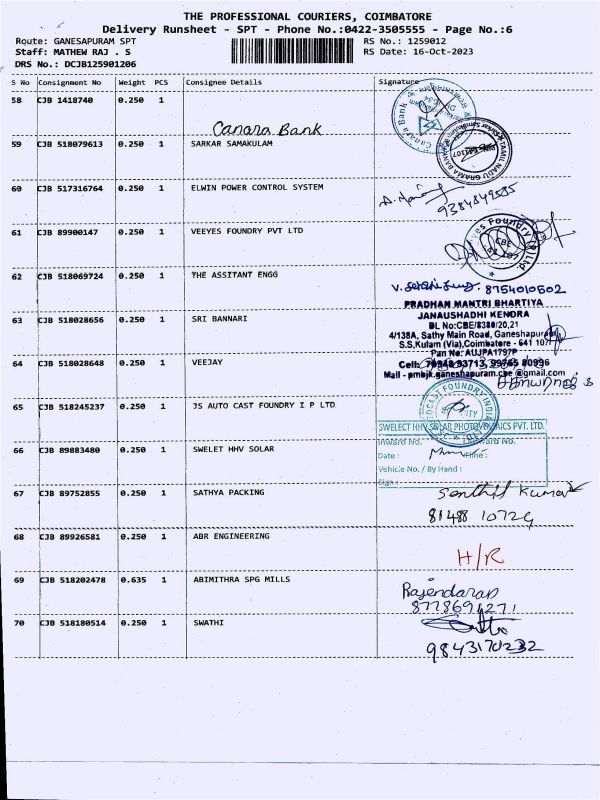 THE PROFESSIONAL COURIERS, COIMBATORE
Delivery Runsheet - SPT - Phone No.:0422-3505555 - Page No.:6
Route: GANESAPURAM SPT RS No.: 1259012
Staff: MATHEW RAJ . S RS Date: 16-Oct-2023
DRS No.: DCJB125901206
S No Consignment No Weight PCS Consignee Details Signature
58 CJB 1418740 0.250 1
Canara Bank
59 CJB 518079613 0.250 1 SARKAR SAMAKULAM
60 CJB 517316764 0.250 1 ELWIN POWER CONTROL SYSTEM
9384849585
61 CJB 89900147 0.250 1 VEEYES FOUNDRY PVT LTD
62 CJB 518069724 0.250 1 THE ASSITANT ENGG
8754010502
PRADHAN MANTRI BHARTIYA
JANAUSHADHI KENDRA
63 CJB 518028656 0.250 1 SRI BANNARI
DL No:CBE/8380/20,21
4/138A, Sathy Main Road, Ganeshapuram
S.S.Kulam (Via),Coimbatore - 641 107
Pan No: AUJPA1797P
64 CJB 518028648 0.250 1 VEEJAY
Cell: 93713, 99765 80996
Mail - pmbjk.ganeshapuram.cbe@gmail.com
65 CJB 518245237 0.250 1 JS AUTO CAST FOUNDRY I P LTD
SWELECT HHV SOLAR PHOTOVOLTAICS PVT. LTD.
Inward No.
66 CJB 89883480 0.250 1 SWELET HHV SOLAR
Date : Time :
Vehicle No. / By Hand :
Sign :
67 CJB 89752855 0.250 1 SATHYA PACKING
Senthil Kumar
81488 10729
68 CJB 89926581 0.250 1 ABR ENGINEERING
H/R
69 CJB 518202478 0.635 1 ABIMITHRA SPG MILLS
Rajendaran
8778694271
70 CJB 518180514 0.250 1 SWATHI
9843170232